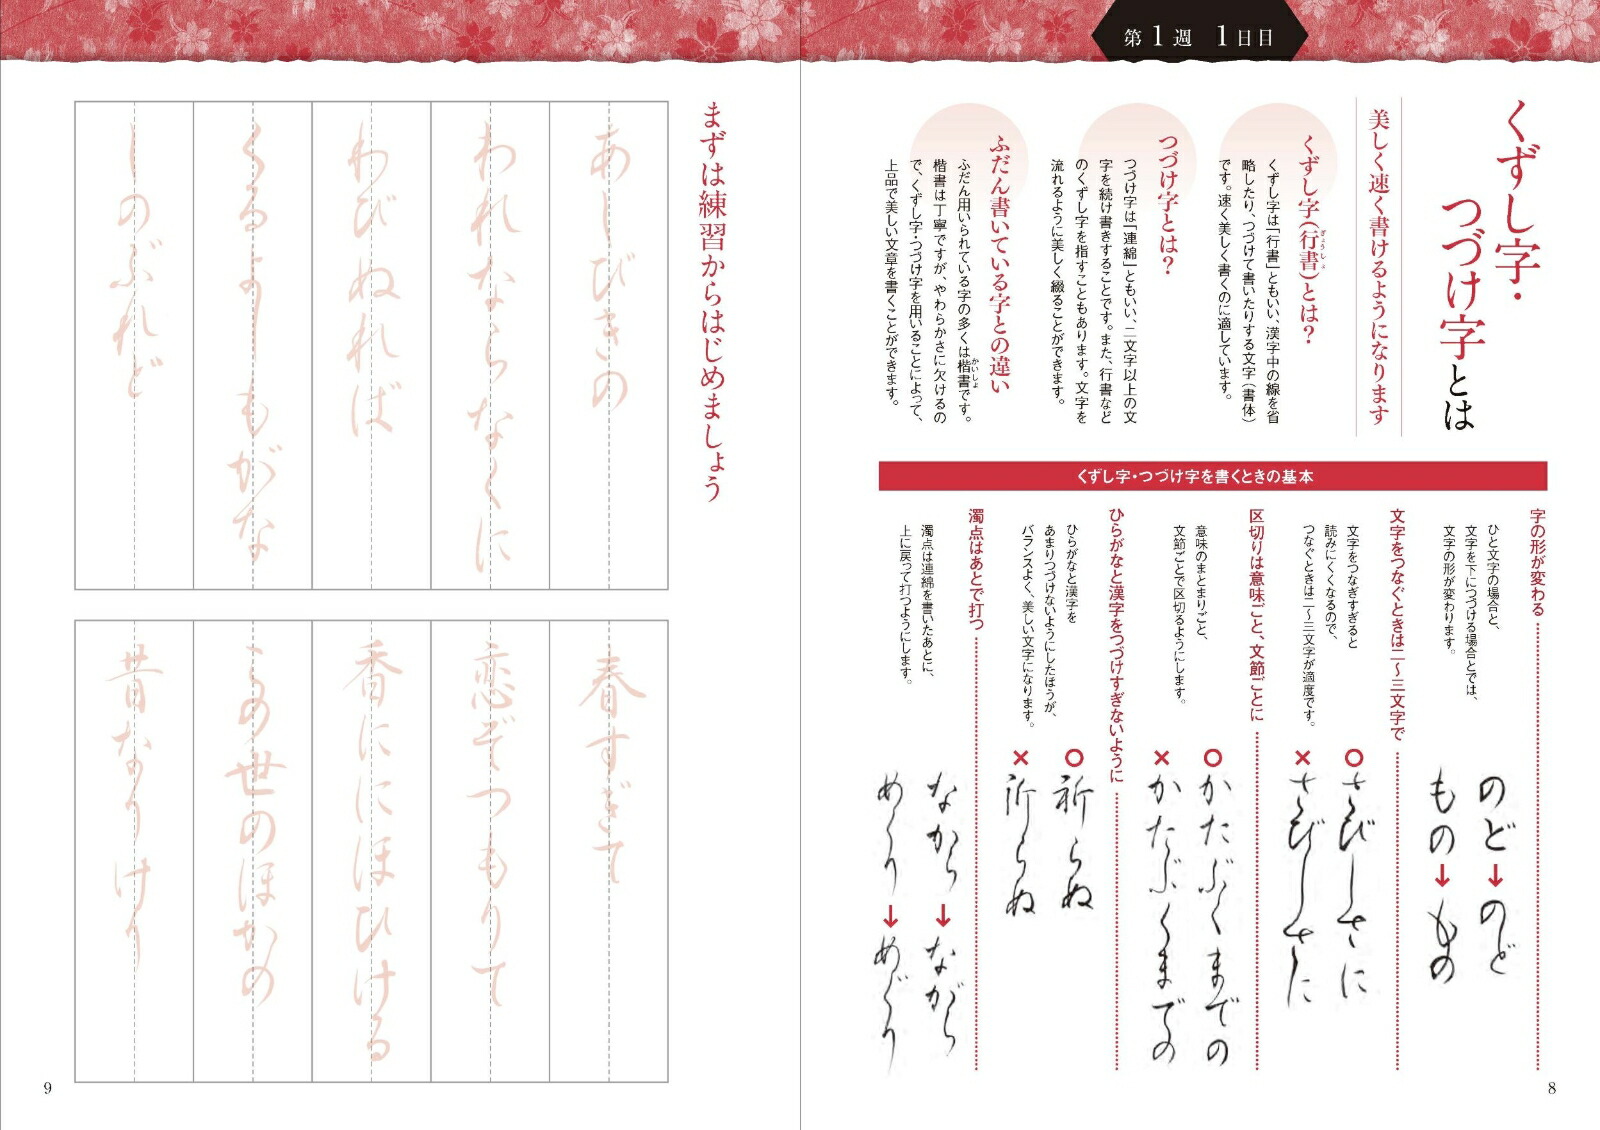 第1週 1日目
くずし字・
つづけ字とは
美しく速く書けるようになります
くずし字(行書)とは?
ぎょうしょ
くずし字は「行書」ともいい、漢字中の線を省
略したり、つづけて書いたりする文字(書体)
です。速く美しく書くのに適しています。
つづけ字とは?
つづけ字は「連綿」ともいい、二文字以上の文
字を続け書きすることです。また、行書など
のくずし字を指すこともあります。文字を
流れるように美しく綴ることができます。
ふだん書いている字との違い
ふだん用いられている字の多くは楷書です。
かいしょ
楷書は丁寧ですが、やわらかさに欠けるの
で、くずし字・つづけ字を用いることによって、
上品で美しい文章を書くことができます。
くずし字・つづけ字を書くときの基本
字の形が変わる
ひと文字の場合と、
文字を下につづける場合とでは、
文字の形が変わります。
のど→のど
もの→もの
文字をつなぐときは二〜三文字で
文字をつなぎすぎると
読みにくくなるので、
つなぐときは二〜三文字が適度です。
○ さびしさに
× さびしさに
区切りは意味ごと、文節ごとに
意味のまとまりごと、
文節ごとで区切るようにします。
○ かたぶくまでの
× かたぶくまでの
ひらがなと漢字をつづけすぎないように
ひらがなと漢字を
あまりつづけないようにしたほうが、
バランスよく、美しい文字になります。
○ 祈らぬ
× 祈らぬ
濁点はあとで打つ
濁点は連綿を書いたあとに、
上に戻って打つようにします。
なから→ながら
めくり→めぐり
8
まずは練習からはじめましょう
あしびきの
われならなくに
わびぬれば
くるよしもがな
しのぶれど
春すぎて
恋ぞつもりて
香ににほひける
この世のほかの
昔なりけり
9